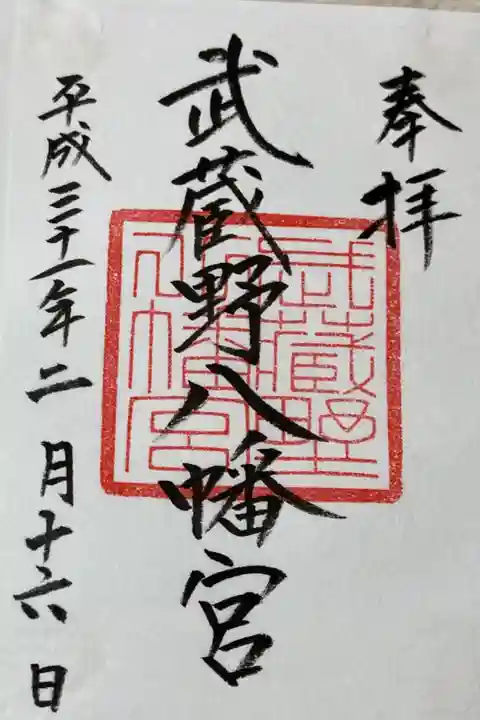 奉拝
武蔵野八幡宮
武蔵野
八幡宮
平成三十一年二月十六日